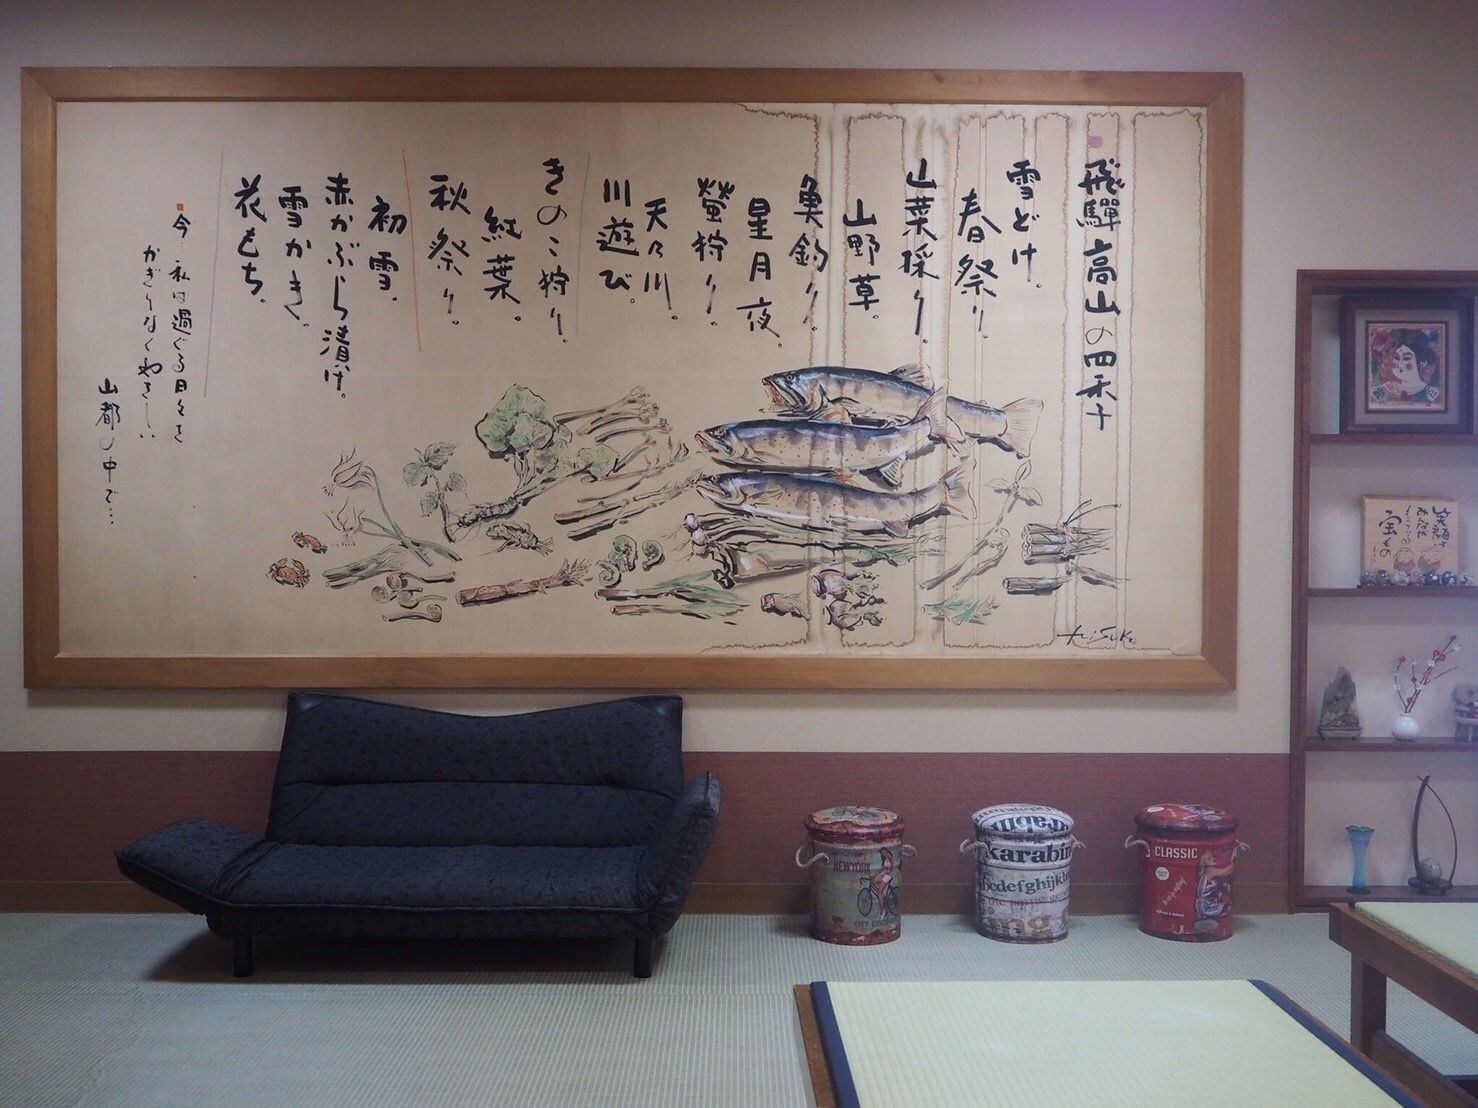 飛驒高山の四季
雪どけ。
春祭り。
山菜採り。
山野草。
魚釣り。
星月夜。
螢狩り。
天乃川。
川遊び。
きのこ狩り。
紅葉。
秋祭り。
初雪。
赤かぶら漬け。
雪かき。
花もち。
今 私は過ぐる日々を
かぎりなくやさしい
山都の中で…
NEWYORK
karabin
bcdefghijkl
CLASSIC
宝もの